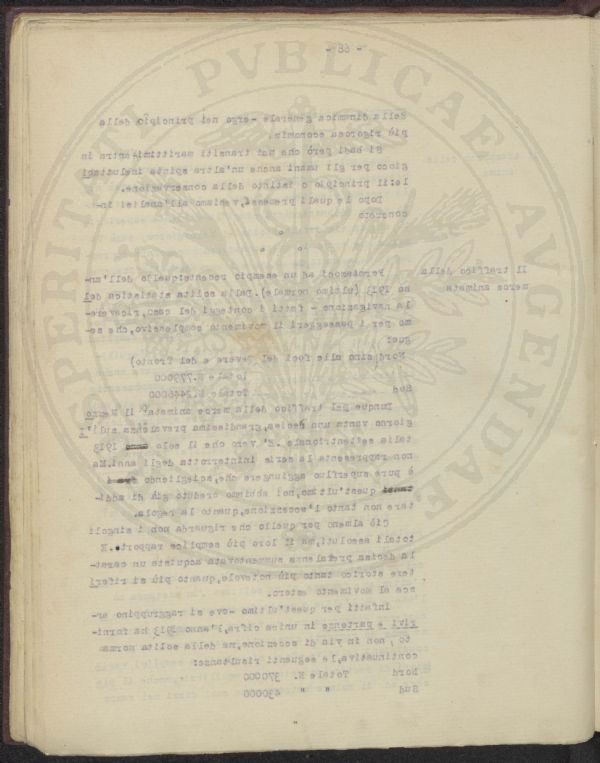 - 68 -
della dinamica generale -ergo nei principio della
più rigorosa economia.
Si badi però che nei transiti marittimi entra in
gioco per gli umani anche un'altra spinta ineluttabi
le:il principio o istinto della conservazione.
Dopo le quali premesse, veniamo all'analisi in-
concreto
Il traffico della
merce animata
Fermiamoci ad un esempio recente:quello dell'an-
no 1913 (ultimo normale). Dalla solita statistica del
la navigazione - fatti i conteggi del caso, ricavere-
mo per i passeggeri il movimento complessivo, che se-
gue:
Nord sino alle foci del Tevere e del Tronto)
Totale N.779000
Sud Totale N.2446000
Dunque nel traffico della merce animata il Mezzo
giorno vanta una decisa, grandissima prevalenza sull'I
talia settentrionale. E' vero che il solo 1913
non rappresenta la serie ininterrotta degli anni. Ma
è pure superfluo aggiungere che, scegliendo
quest'ultimo, noi abbiamo creduto già di addi-
tare non tanto l'eccezione, quanto la regola.
Ciò almeno per quello che riguarda non i singoli
totali assoluti, ma il loro più semplice rapporto. E
la decisa prevalenza summentovata acquista un carat-
tere storico tanto più notevole, quanto più si riferi
sce al movimento estero.
Infatti per quest'ultimo -ove si raggruppino ar-
rivi e partenze in unica cifra, l'anno 1913 ha forni-
to, non in via di eccezione, ma della solita norma
continuativa, le seguenti risultanze:
Nord Totale N. 370000
Sud " " 430000
PVBLICAE
AVGENDAE